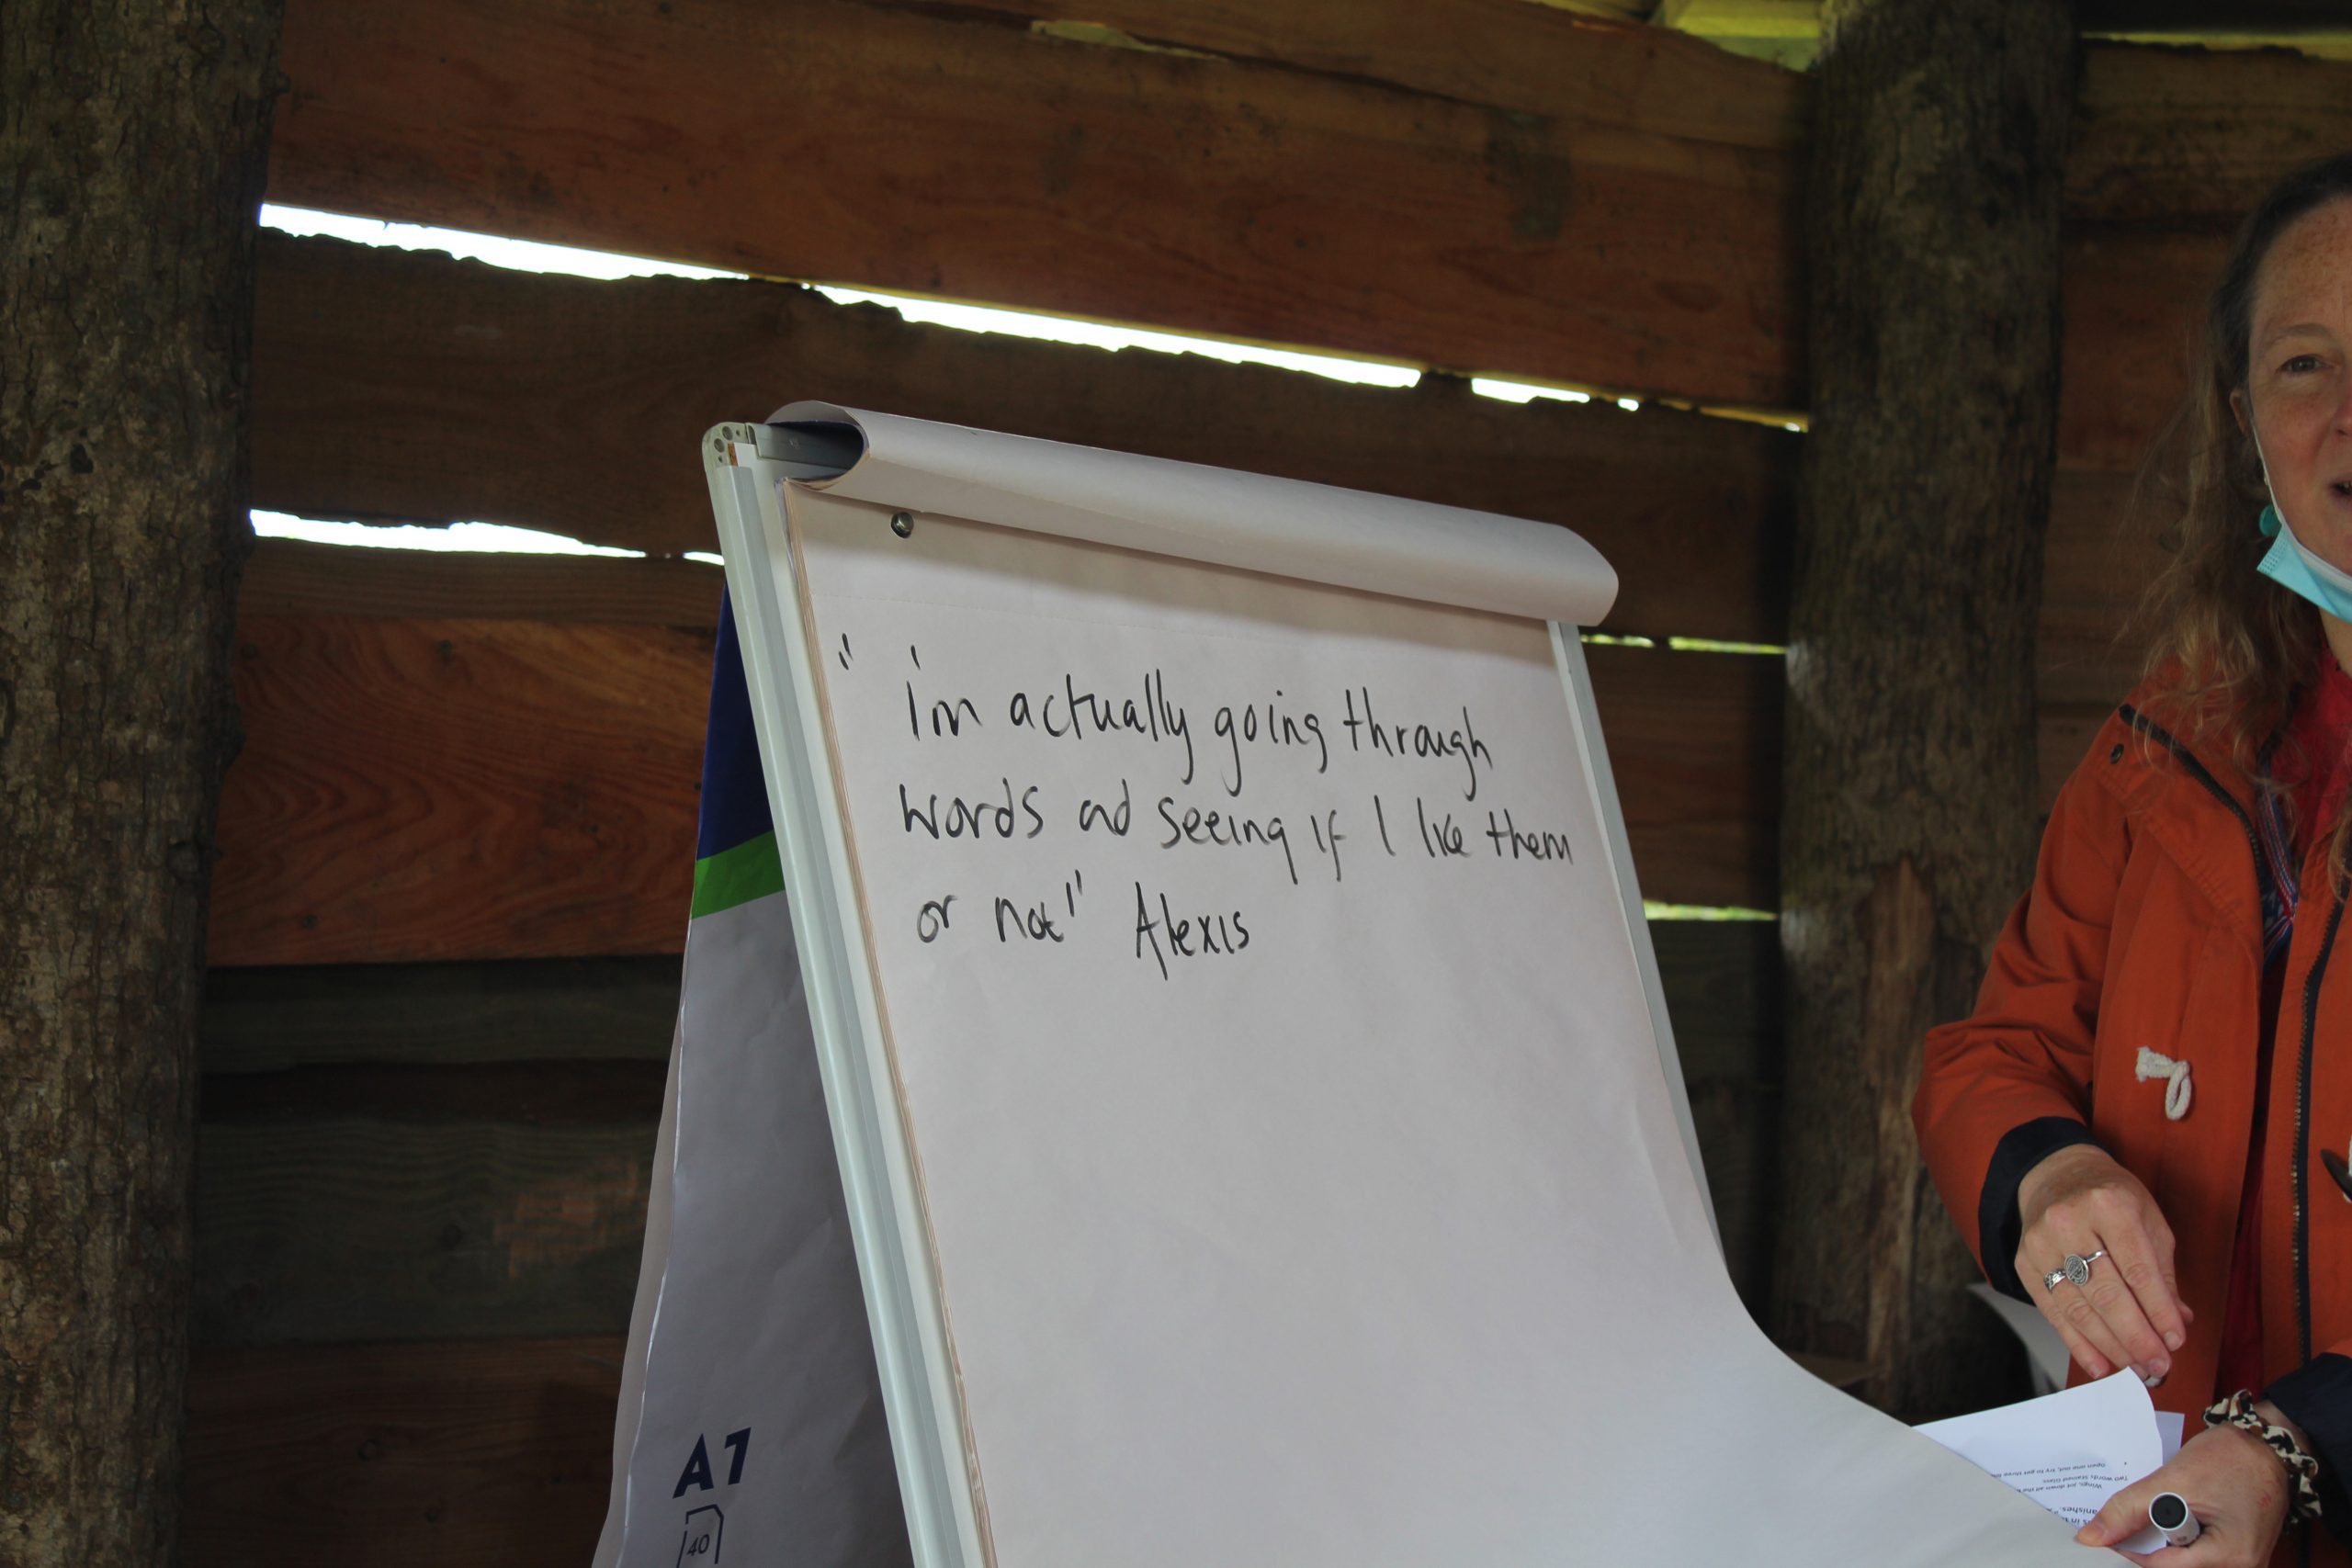 " i'm actually going through
words ad seeing if I like them
or not" Alexis
A1
40